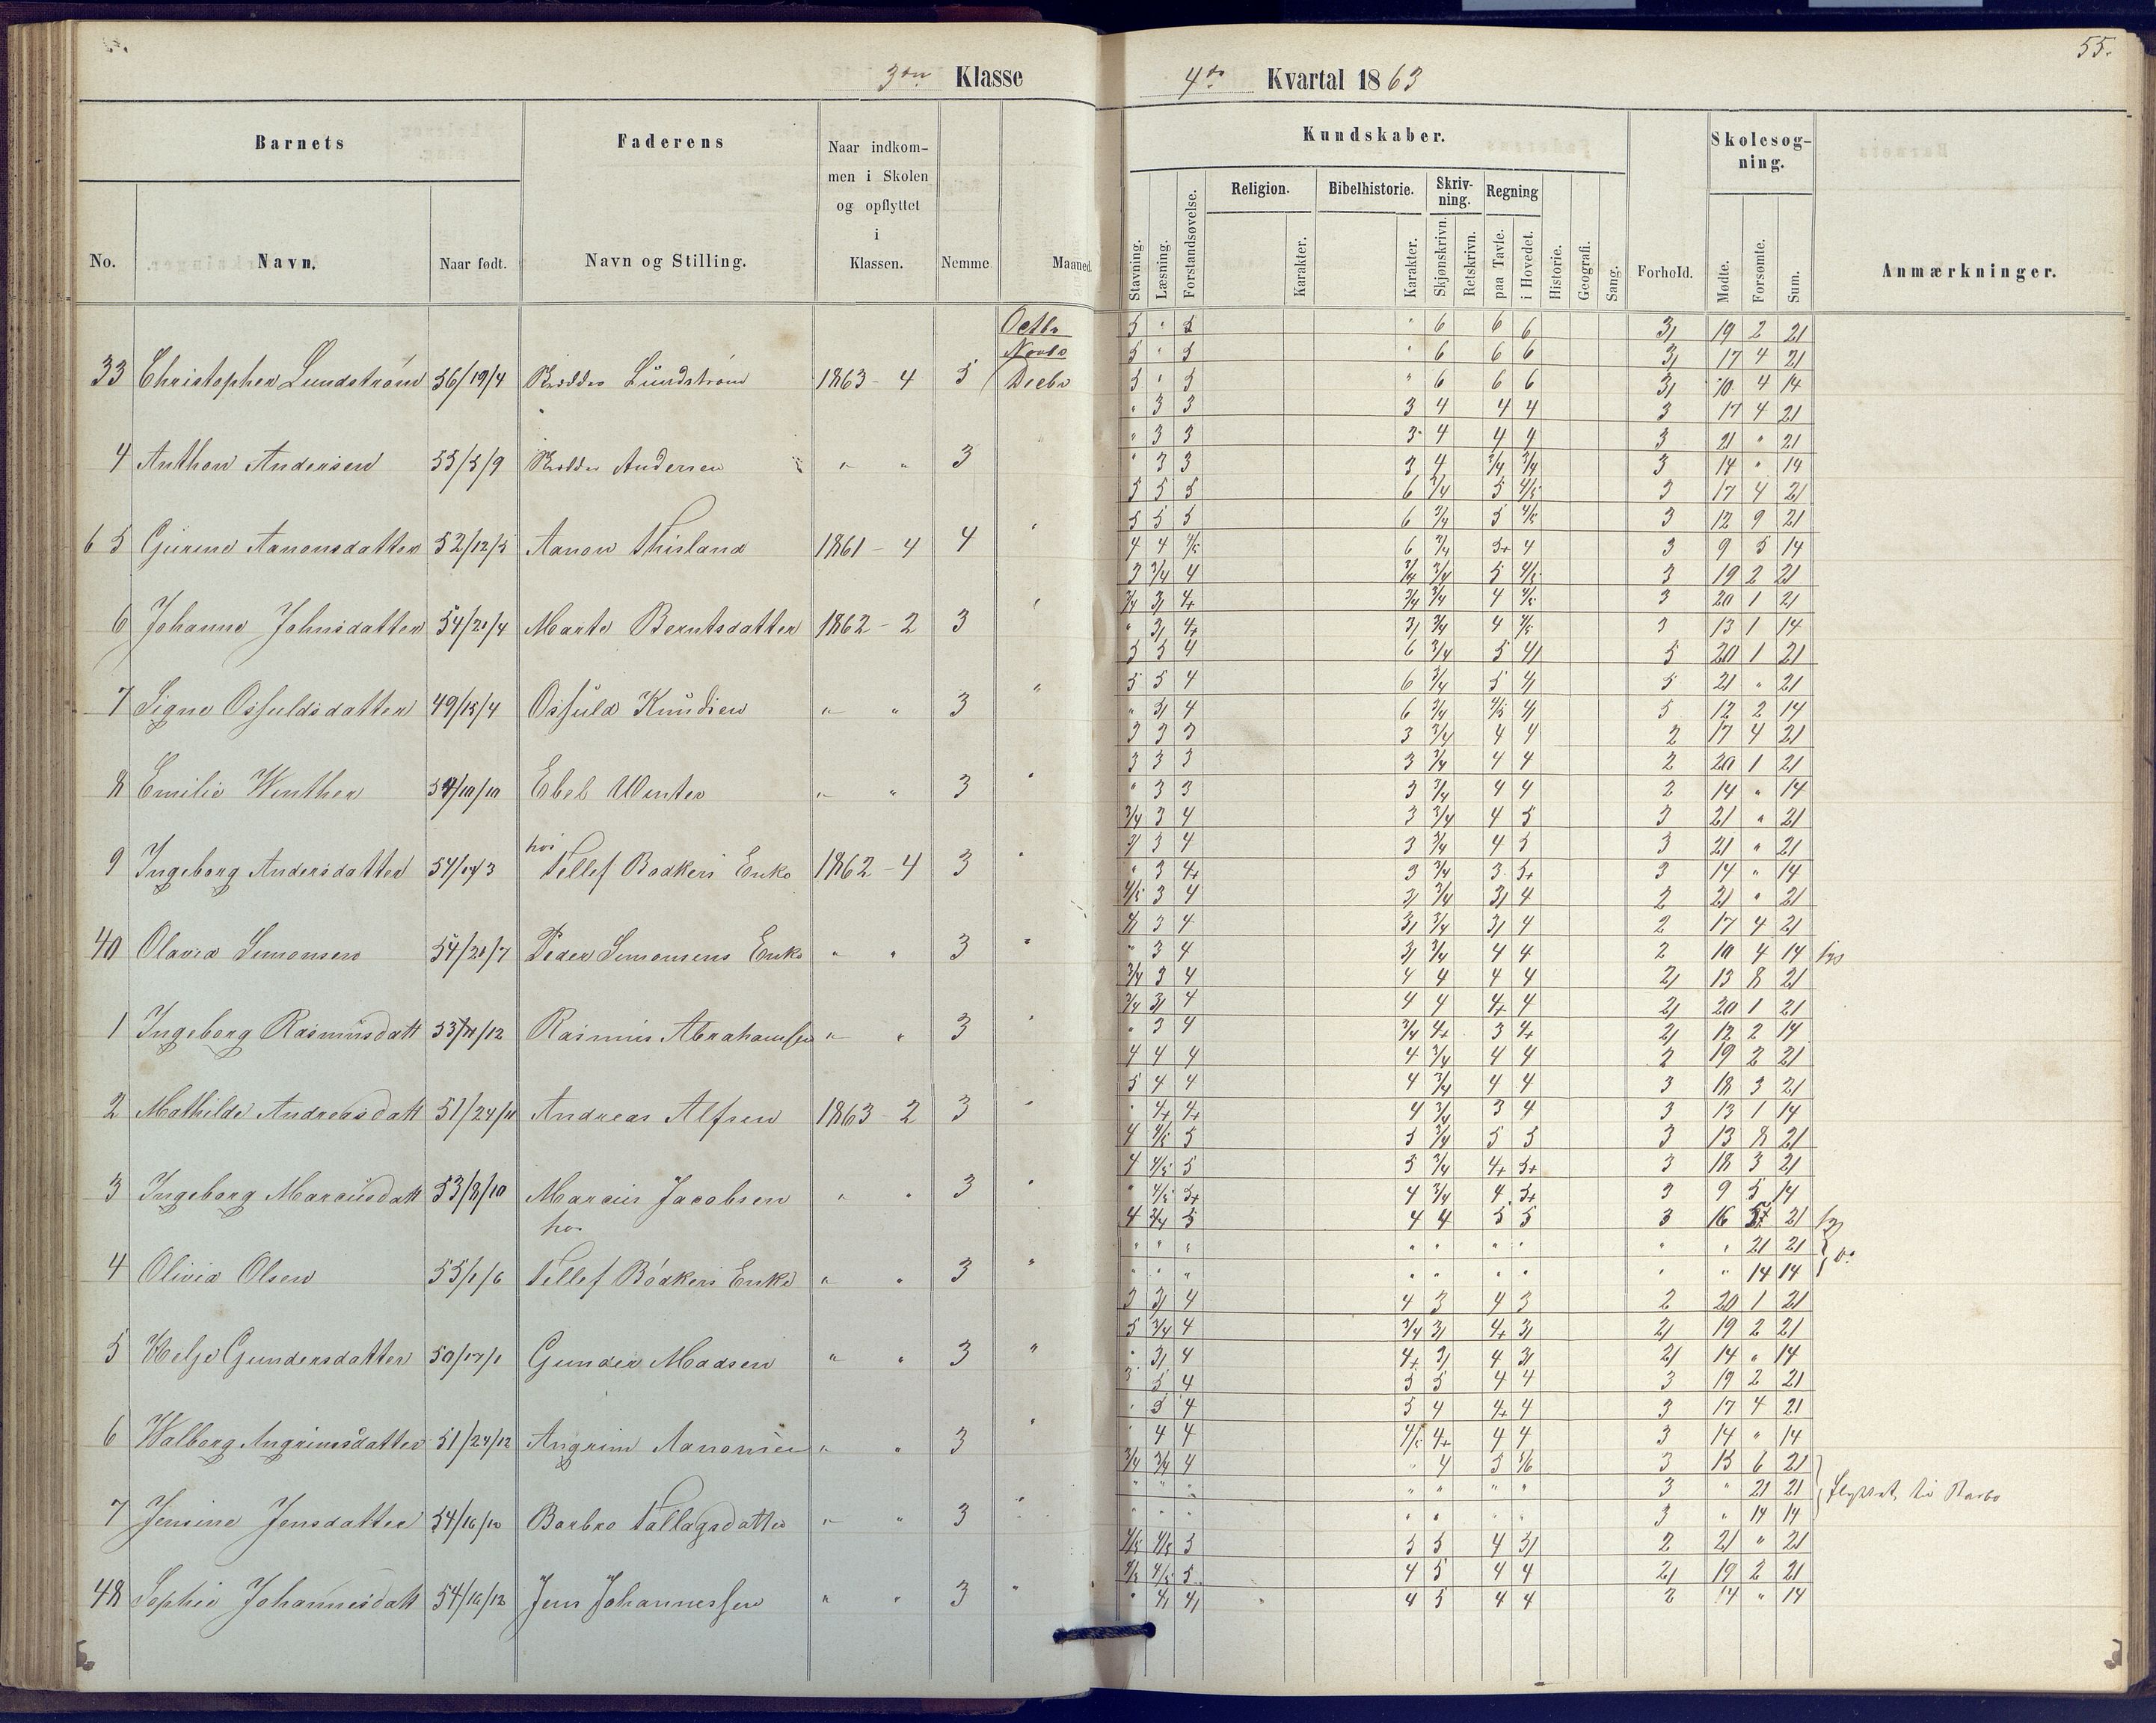 55.
3die Klasse 4de Kvartal 1863
Barnets Faderens Naar indkommen i Skolen og opflyttet i Klassen. Nemme Maaned. Kundskaber. Forhold. Skolesøgning. Anmærkninger.
No. Navn. Naar født. Navn og Stilling.
Stavning. Læsning. Forstandsøvelse. Religion. Karakter. Bibelhistorie. Karakter. Skrivning. Skjønskrivn. Retskrivn. Regning paa Tavle. i Hovedet. Historie. Geografi. Sang. Mødte. Forsømte. Sum.
Octbr 5 " 5 " 6 6 6 3/ 19 2 21
Novbr 5 " 5 " 6 6 6 3/ 17 4 21
33 Christopher Lundstrøm 56/19/4 Lundstrøm 1863 - 4 5 Decbr 5 " 5 " 6 6 6 3/ 10 4 14
3 3 3 4 4 4 3 17 4 21
" 3 3 3 4 4 4 3 21 " 21
4 Anthon Andersen 55/5/9 Andersen " " 3 " 3 3 3 4 3/4 3/4 3 14 " 14
5 5 5 6 3/4 5 4/5 3 17 4 21
5 5 5 6 3/4 5 4/5 3 12 9 21
6 5 Gurine Aanonsdatter 52/12/5 Aanon Thisland 1861 - 4 4 " 4 4 4/5 6 3/4 5+ 4 3 9 5 14
3 3/4 4 3/4 3/4 5 4/5 3 19 2 21
3/4 3/ 4+ 3/4 3/4 4 4/5 3 20 1 21
6 Johanne Johnsdatter 54/21/4 Marte Berntsdatter 1862 - 2 3 " " 3/ 4+ 3/ 3/4 4 4/5 3 13 1 14
5 5 4 6 3/4 5 4/ 5 20 1 21
5 5 4 6 3/4 5 4/ 5 21 " 21
7 Signe Osfuldsdatter 49/15/4 Osfuld Knudsen " " 3 " " 5/ 4 6 3/4 4/5 4/ 5 12 2 14
3 3 3 3 3/4 4 4 2 17 4 21
3 3 3 3 3/4 4 4 2 20 1 21
8 Emilie Winther 54/10/10 Ebel Winter " " 3 " " 3 3 3 3/4 4 4 2 14 " 14
3/4 3 4 3 3/4 4 5 3 21 " 21
3/ 3 4 3 3/4 4 5 3 21 " 21
9 Ingeborg Andersdatter hos Tellef Bødkers Enke 1862 - 4 3 " " 3 4+ 3 3/4 3 5+ 3 14 " 14
4/5 3 4 3/ 3/4 3/ 4 2 21 " 21
3 4 3/ 3/4 3/ 4 2 17 4 21
40 Olava Simonsen 54/21/7 Peder Simonsens Enke " " 3 " " 3 4 3/ 3/4 4 4 2 10 4 14
3/4 3 4 4 4 4 4 2/ 13 8 21
3/4 3/ 4 4 4 4+ 4 2/ 20 1 21
1 Ingeborg Rasmusdatt Rasmus Abrahamsen " " 3 " " 3 4 3/4 4+ 3 4+ 2/ 12 2 14
4 4 4 4 3/4 4 4 2 19 2 21
5 4 4 4 3/4 4 4 3 18 3 21
2 Mathilde Andreasdatt 51/24/11 Andreas Alfsen 1863 - 2 3 " " 4+ 4+ 4 3/4 3 4 3 13 1 14
4 4/5 5 5 3/4 5 5 3 13 8 21
4 4/5 5 5 3/4 4+ 5+ 3 18 3 21
3 Ingeborg Marcusdatt 53/8/10 Marcus Jacobsen " " 3 " " 4/5 5+ 4 3/4 4 5+ 3 9 5 14
4 3/4 5 4 4 5 5 3 16 5 21
" " " " " " " " " 21 21
4 Olivia Olsen 55/1/6 hos Tellef Bødkers Enke " " 3 " " " " " " " " " " 14 14
3 3/ 4 4 3 4 3 2 20 1 21
5 3/4 4 3/4 3/ 4+ 3/ 2/ 19 2 21
5 Helje Gundersdatter 50/17/1 Gunder Madsen " " 3 " " 3/ 4 4+ 3/ 4 3/ 2/ 14 " 14
3 5 4 5 5 4 4 3 19 2 21
" 5 4 5 4 4+ 4 3 17 4 21
6 Walborg Angrimsdatter 51/24/12 Angrim Aanonsen " " 3 " " 4 4 4/5 4+ 4 4 3 14 " 14
3/4 3/4 4 " 4 5 5/6 3 15 6 21
" " " " " " " 3 " 21 21 flyttet til Barbo
7 Jensine Jensdatter 54/16/10 Barbro Tallagsdatter " " 3 " " " " " " " " 3 " 14 14
4/5 4/5 5 5 5 4 5/ 2 21 " 21
4/5 4/5 5 4 5 4 4 2/ 19 2 21
48 Sophie Johannesdatt 54/16/12 Jens Johannessen " " 3 " " 4/ 4/ 4 5 4 4 2 14 " 14